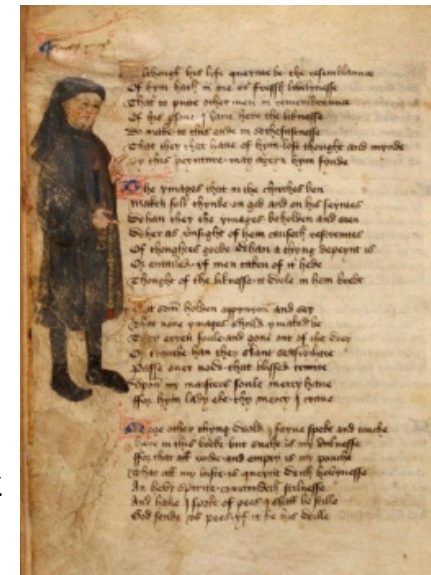 Although his life queynte be the resemblaunce
Of hym hath in me so fressh liflynesse
That to putte other men in remembraunce
Of his persone I haue here the liknesse
Do make to this ende in sothfastnesse
That they that haue of hym lost thought and mynde
By this peynture may ageyn hym fynde
The ymages that in the chirches ben
Maketh folk thynke on god and on his seyntes
Whan they the ymages beholden and seen
Of thoughtes goode whan a thyng depeynt is
Or entailed if men taken of it hede
Thought of the liknesse it wole in hem brede
Yit som holden oppynyon and sey
That none ymages shuld ymaked be
They erren foule and gone out of the wey
Of trouthe haue they skant sensibilite
Passe ouer now that blissed trinite
Vpon my maistres soule mercy haue
For hym lady eke thy mercy I craue
More other thyng wold I fayne speke and touche
Here in this booke but suche is my dulnesse
For that all voide and empty is my pouche
That all my luste is queynt with heuynesse
An heuy spirite comaundeth stilnesse
And haue I spoke of pees I shall be stille
God sende vs pees if it be his wille